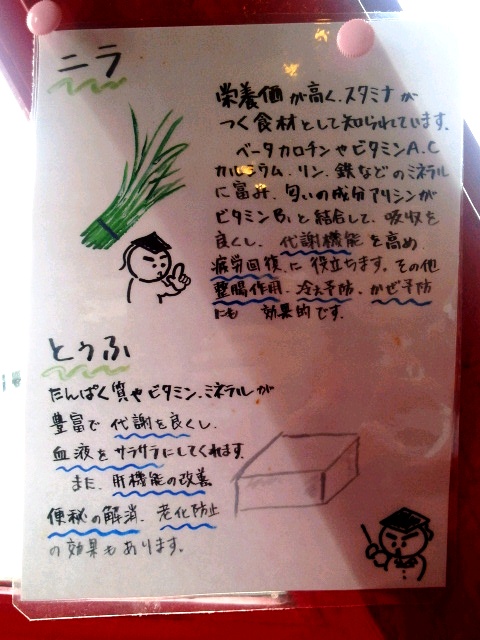 ニラ
栄養価が高く、スタミナが
つく食材として知られています。
ベータカロチンやビタミンA.C
カルシウム.リン.鉄などのミネラル
に富み、匂いの成分アリシンが
ビタミンB₁と結合して、吸収を
良くし、代謝機能を高め
疲労回復に役立ちます。その他
整腸作用、冷え予防、かぜ予防
にも 効果的です。
とうふ
たんぱく質やビタミン.ミネラルが
豊富で代謝を良くし、
血液をサラサラにしてくれます。
また、肝機能の改善
便秘の解消、老化防止
の効果もあります。